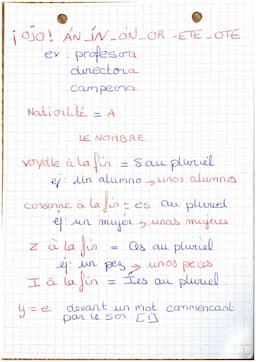 ¡OJO! ÁN_ÍN_ÓN_OR -ETE_OTE
ex : profesora
directora
campeona
Natiolité = A
LE NOMBRE
voyelle à la fin = S au pluriel
ej: un alumno → unos alumnos
consonne à la fin = es au pluriel
ej: un mujer → unas mujeres
Z à la fin = Ces au pluriel
ej: un pez → unos peces
I à la fin = Íes au pluriel.
y = e devant un mot commencant
par le son [i]